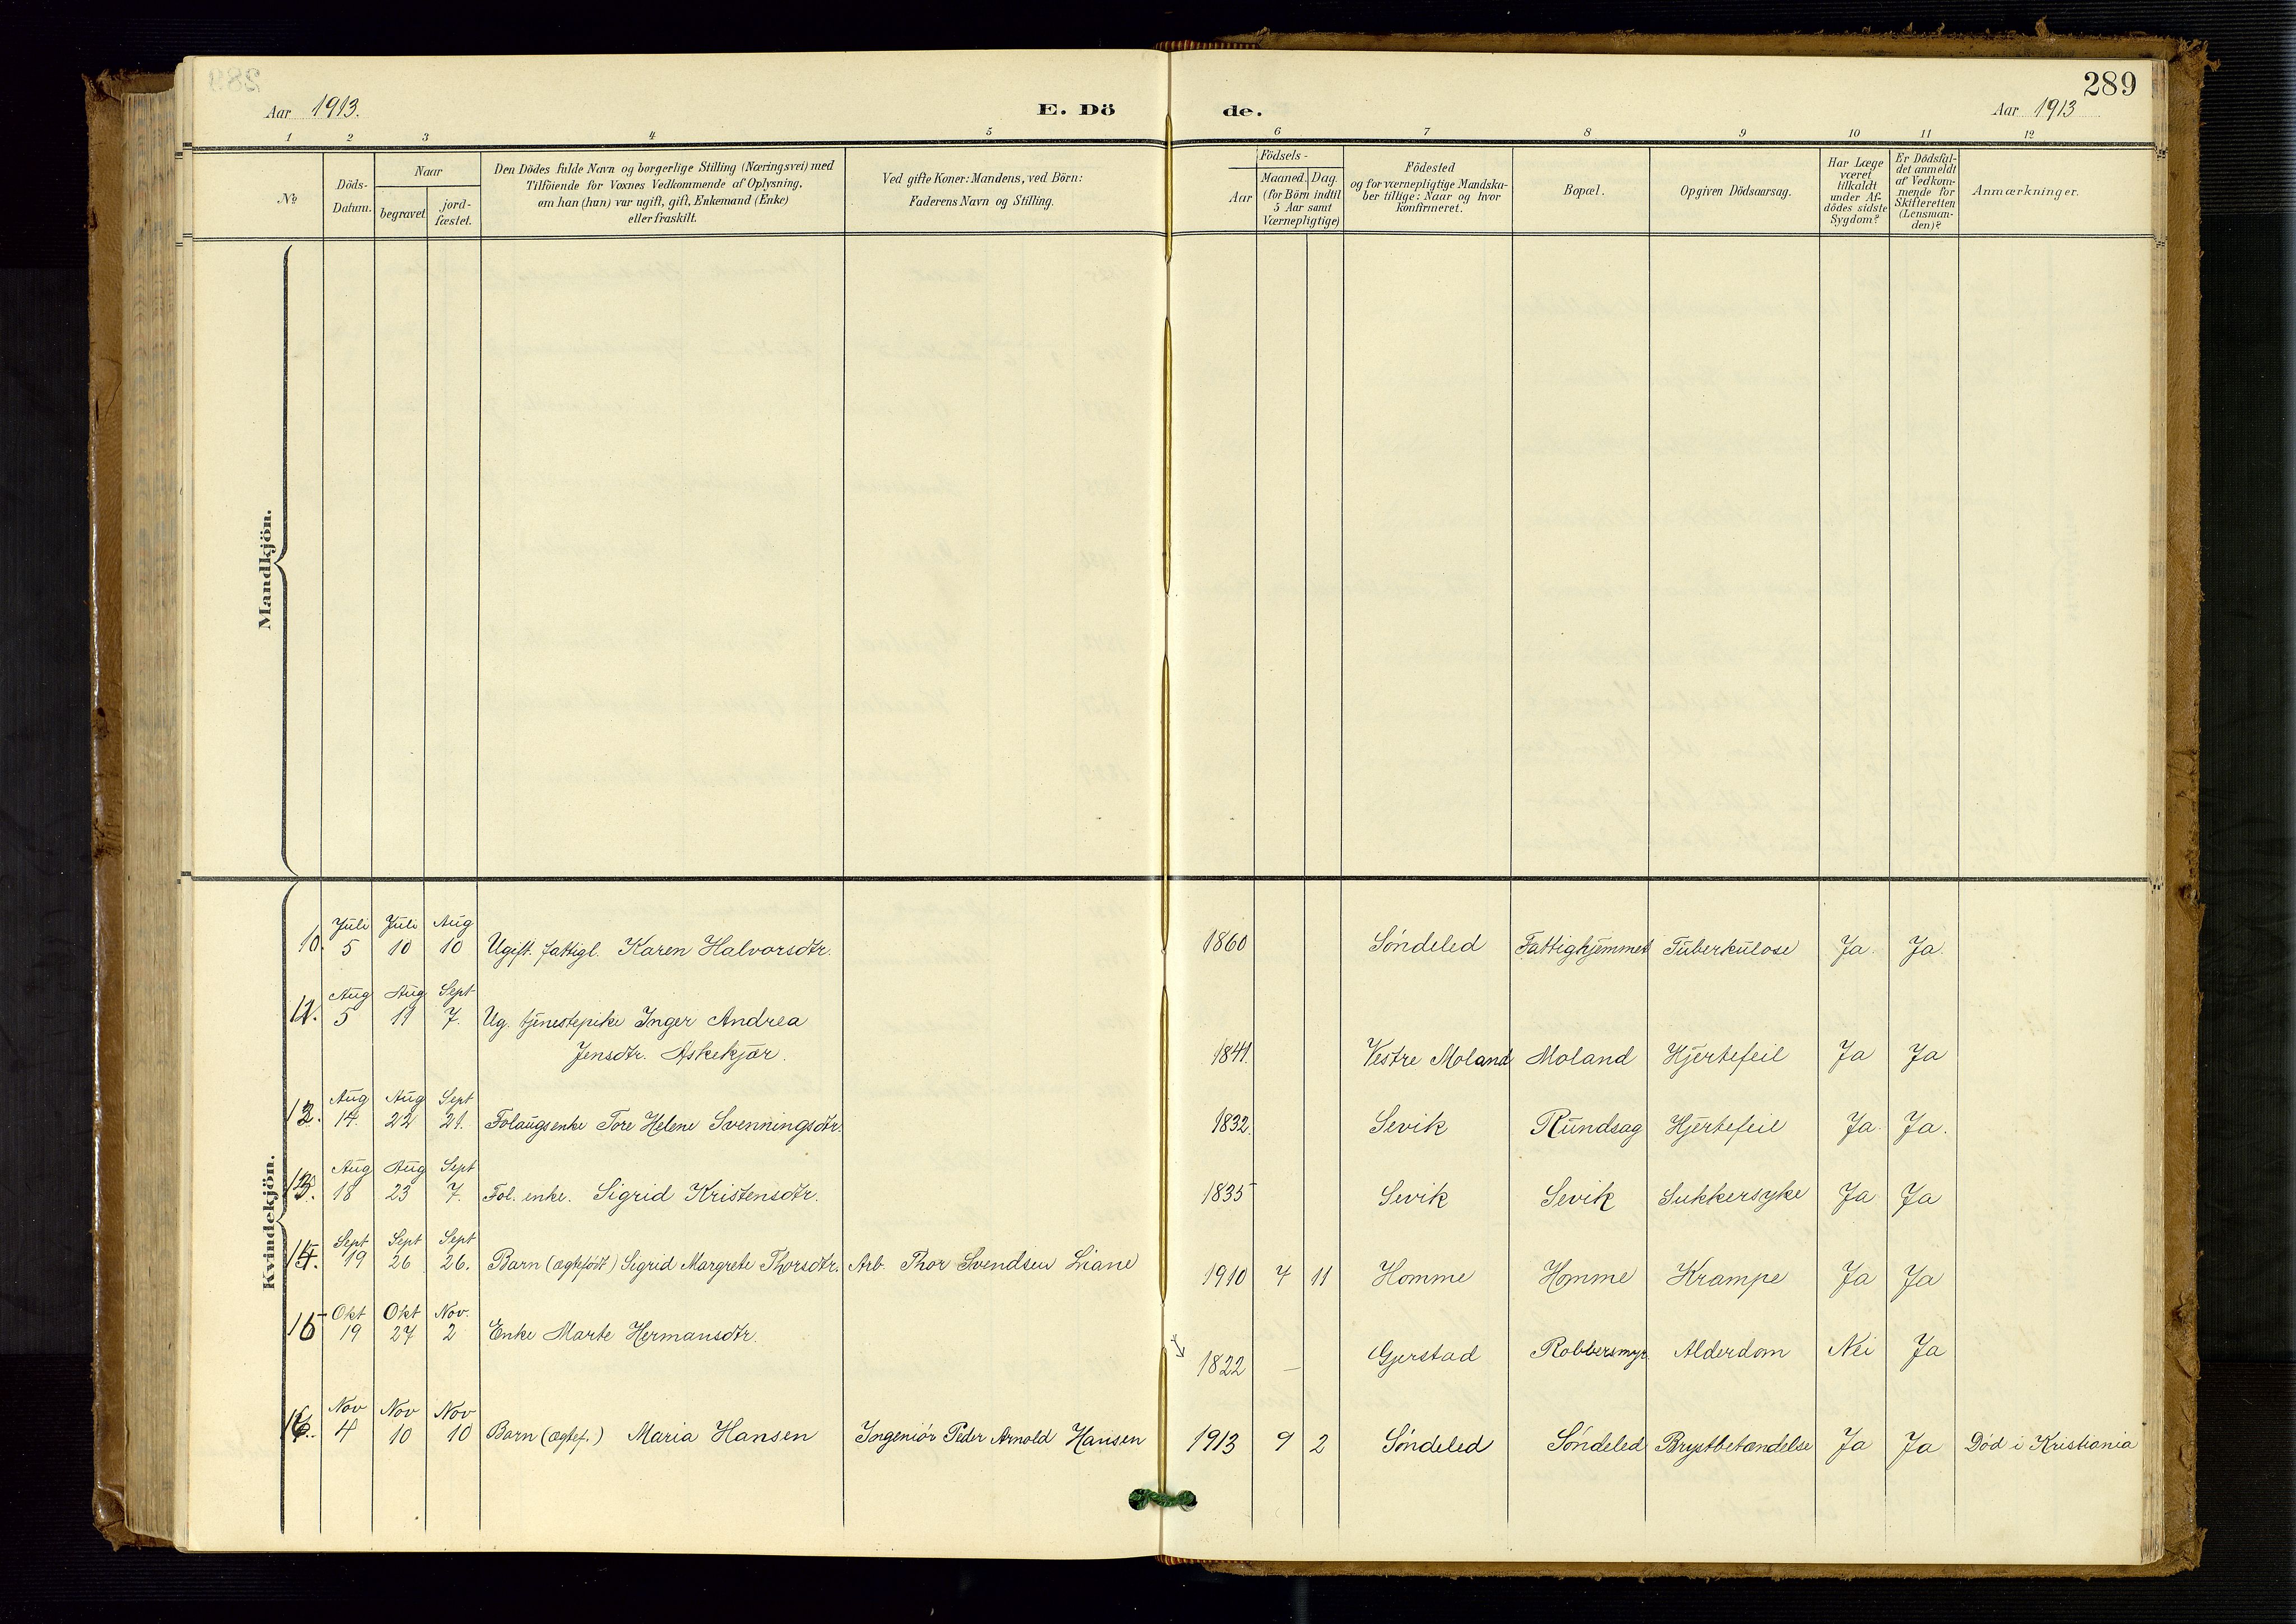 289
Aar 1913.
E. Dö
de.
Aar 1913
1 2 3 4 5 6 7 8 9 10 11 12
№
Döds-
Datum.
Naar
begravet
jord-
fæstet.
Den Dödes fulde Navn og borgerlige Stilling (Næringsvei) med
Tilföiende for Voxnes Vedkommende af Oplysning,
om han (hun) var ugift, gift, Enkemand (Enke)
eller fraskilt.
Ved gifte Koner: Mandens, ved Börn:
Faderens Navn og Stilling.
Födsels-
Aar
Maaned. Dag.
(for Börn indtil
5 Aar samt
Værnepligtige)
Födested
og for værnepligtige Mandska-
ber tillige: Naar og hvor
konfirmeret.
Bopæl.
Opgiven Dödsaarsag.
Har Læge
været
tilkaldt
under Af-
dödes sidste
Sygdom?
Er Dödsfal-
det anmeldt
af Vedkom-
mende for
Skifteretten
(Lensman-
den)?
Anmærkninger.
Mandkjön.
Kvindekjön.
Juli Juli Aug
10. 5 10 10 Ugift. fattigl. Karen Halvorsdtr. 1860 Söndeled Fattighjemmet Tuberkulose Ja. Ja.
Aug Aug Sept
11. 5 11 7. Ug. tjenestepike Inger Andrea
Jensdtr. Askekjær. 1841. Vestre Moland Moland Hjertefeil Ja Ja
Aug Aug Sept
12. 14. 22 21. Folaugsenke Tore Helene Svenningsdtr. 1832. Sevik Rundsag Hjertefeil Ja. Ja.
Aug Aug Sept
13. 18 23 7. Fol. enke. Sigrid Kristensdtr. 1835 Sevik Sevik Sukkersyke Ja Ja
Sept Sept Sept
14. 19 26 26. Barn (ægtefödt) Sigrid Margrete Thorsdtr. Arb. Thor Svendsen Liane 1910 4 11 Homme Homme Krampe Ja Ja
Okt Okt Nov.
15 19 27 2 Enke Marte Hermansdtr. 1822 — Gjerstad Robbersmyr. Alderdom Nei Ja
Nov Nov Nov
16. 4 10 10 Barn (ægtef.) Maria Hansen Ingeniör Peder Arnold Hansen 1913 9 2 Söndeled Söndeled Brystbetændelse Ja Ja Död i Kristiania